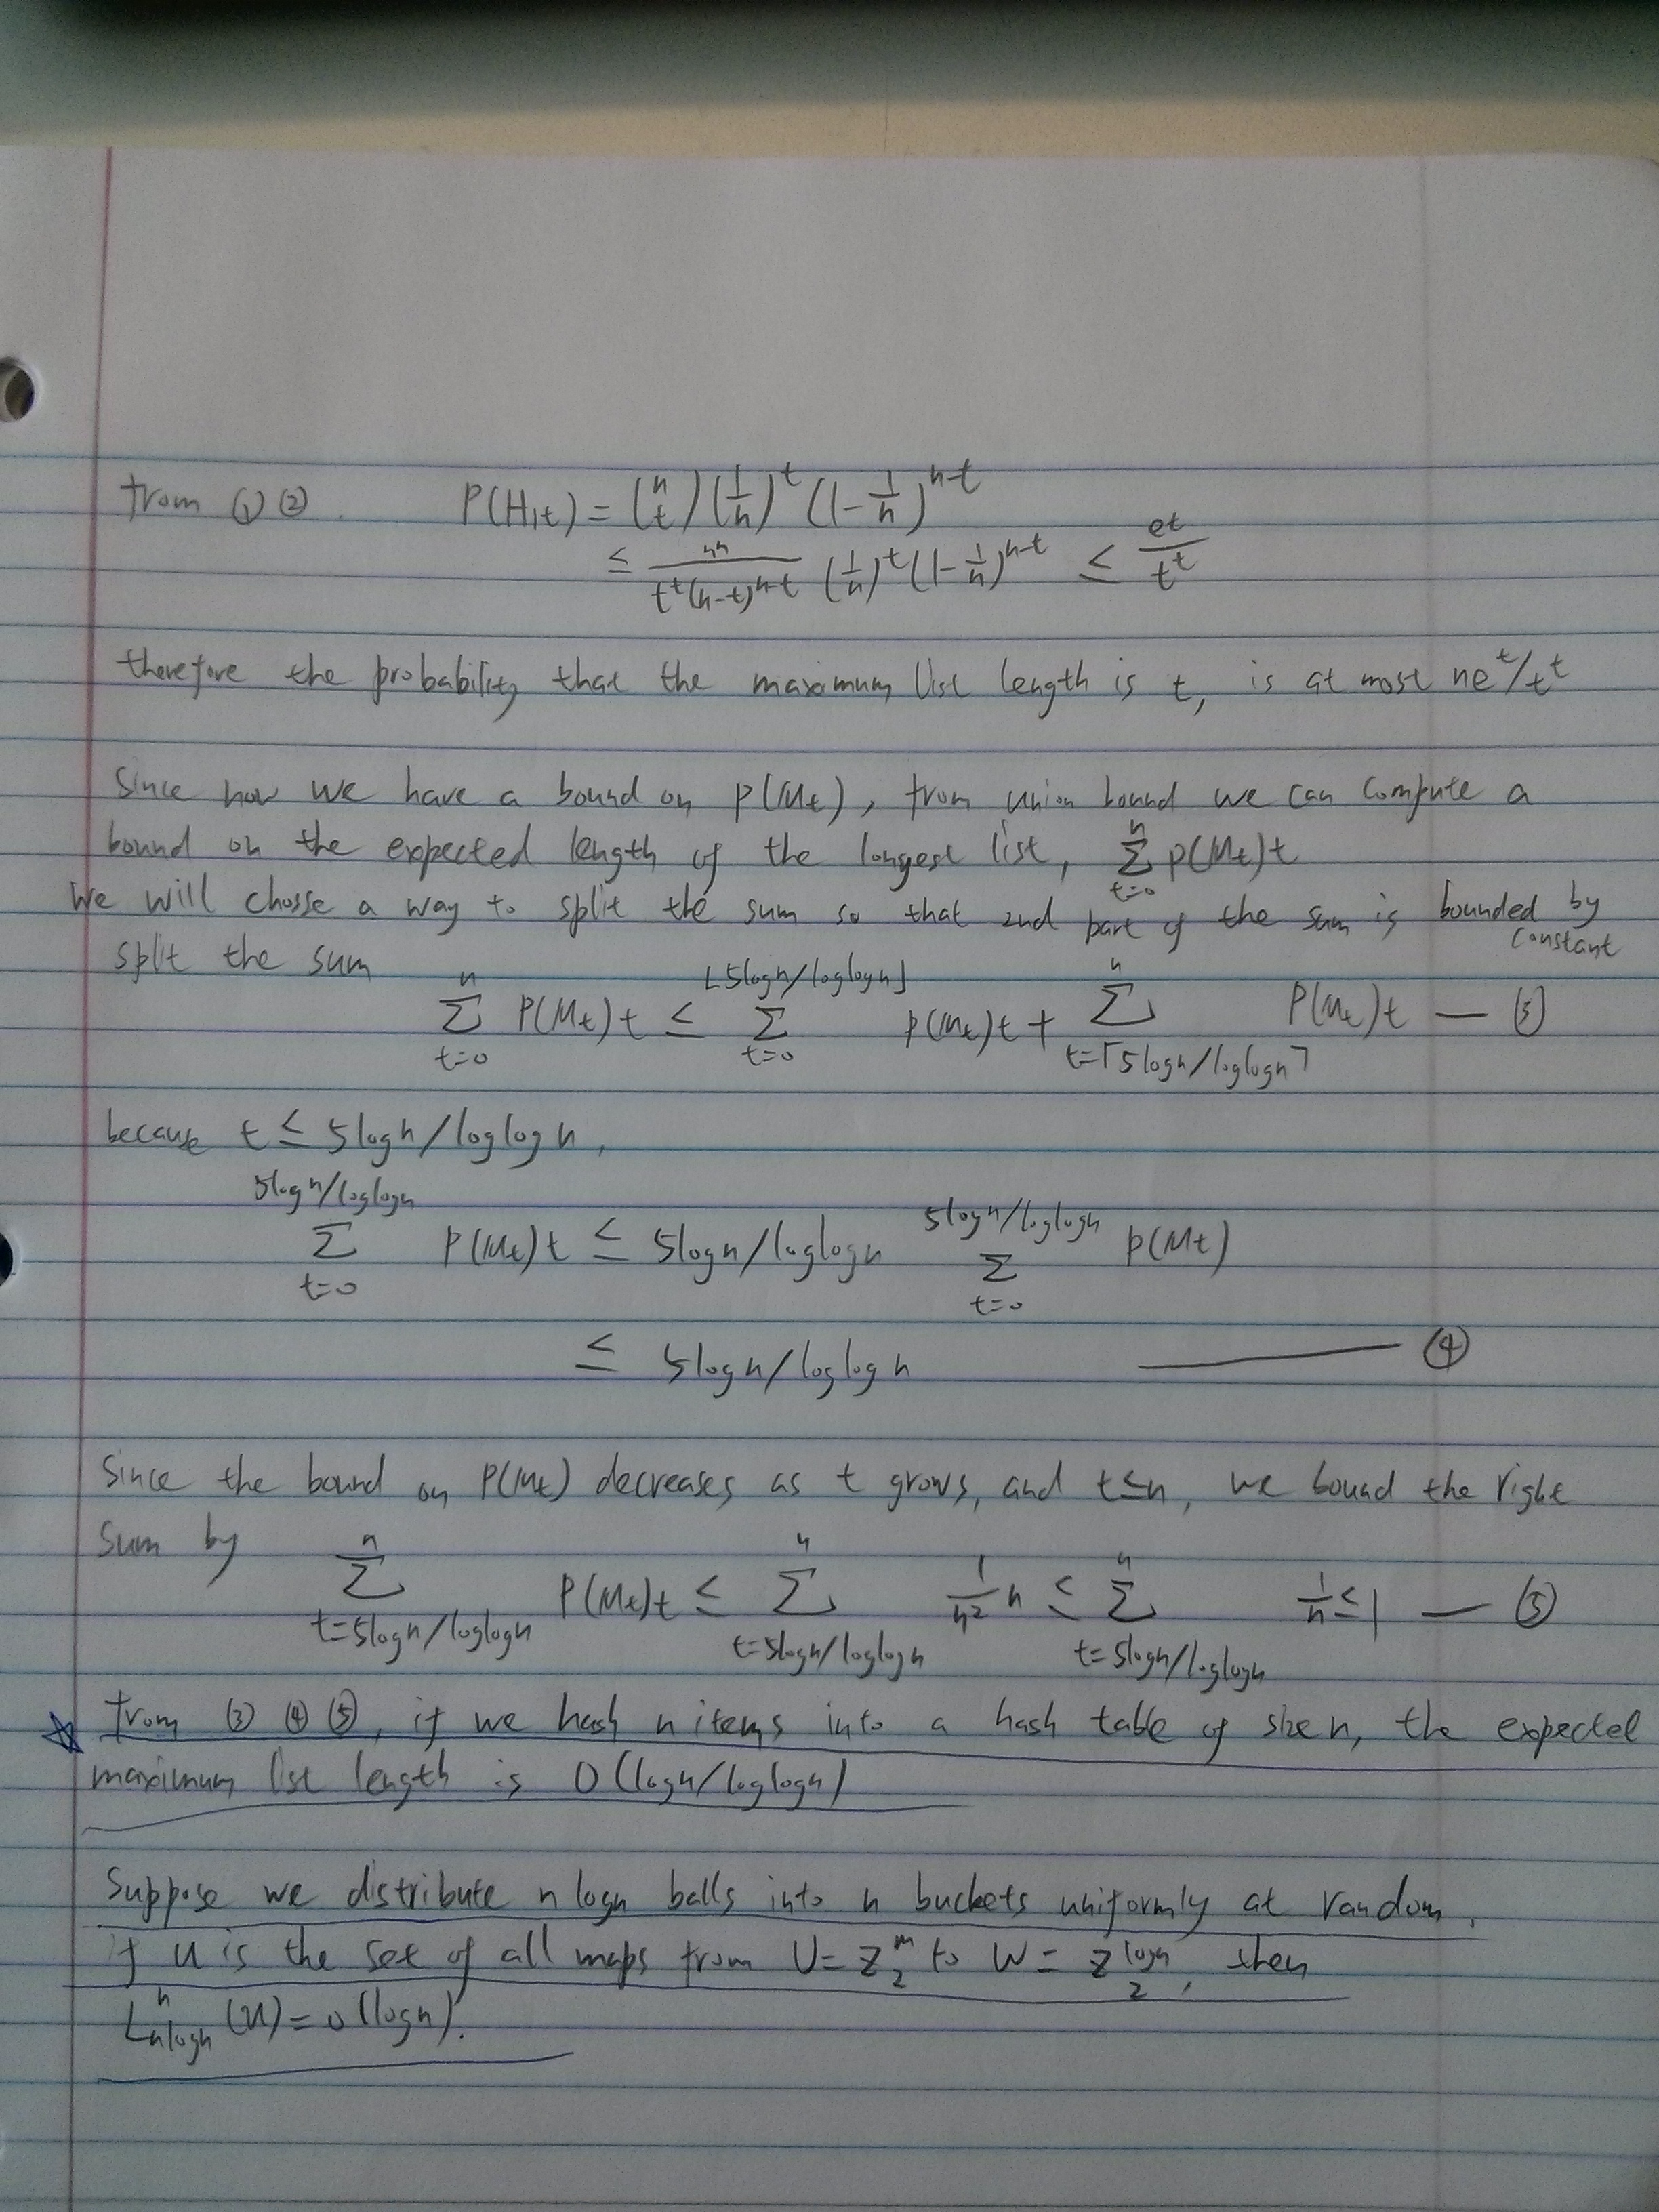 from ① ②. P(H₁t) = (n t)(1/n)^t (1-1/n)^{n-t}
≤ n^n / t^t(n-t)^{n-t} (1/n)^t (1-1/n)^{n-t} ≤ e^t / t^t
therefore the probability that the maximum list length is t, is at most ne^t/t^t
Since now we have a bound on P(Mt), from union bound we can compute a
bound on the expected length of the longest list, Σ_{t=0}^{n} P(Mt)t
We will chosse a way to split the sum so that 2nd part of the sum is bounded by constant
split the sum
Σ_{t=0}^{n} P(Mt)t ≤ Σ_{t=0}^{⌊5logn/loglogn⌋} P(Mt)t + Σ_{t=⌈5logn/loglogn⌉}^{n} P(Mt)t — ③
because t ≤ 5logn/loglogn,
Σ_{t=0}^{5logn/loglogn} P(Mt)t ≤ 5logn/loglogn Σ_{t=0}^{5logn/loglogn} P(Mt)
≤ 5logn/loglogn — ④
Since the bound on P(Mt) decreases as t grows, and t≤n, we bound the right
sum by Σ_{t=5logn/loglogn}^{n} P(Mt)t ≤ Σ_{t=5logn/loglogn}^{n} 1/n² n ≤ Σ_{t=5logn/loglogn}^{n} 1/n ≤ 1 — ⑤
☆ from ③ ④ ⑤, if we hash n items into a hash table of size n, the expected
maximum list length is O(logn/loglogn)
Suppose we distribute n logn balls into n buckets uniformly at random.
if u is the set of all maps from U = Z_2^m to W = Z_2^{logn}, then
L_{nlogn}^{n}(u) = o(logn).